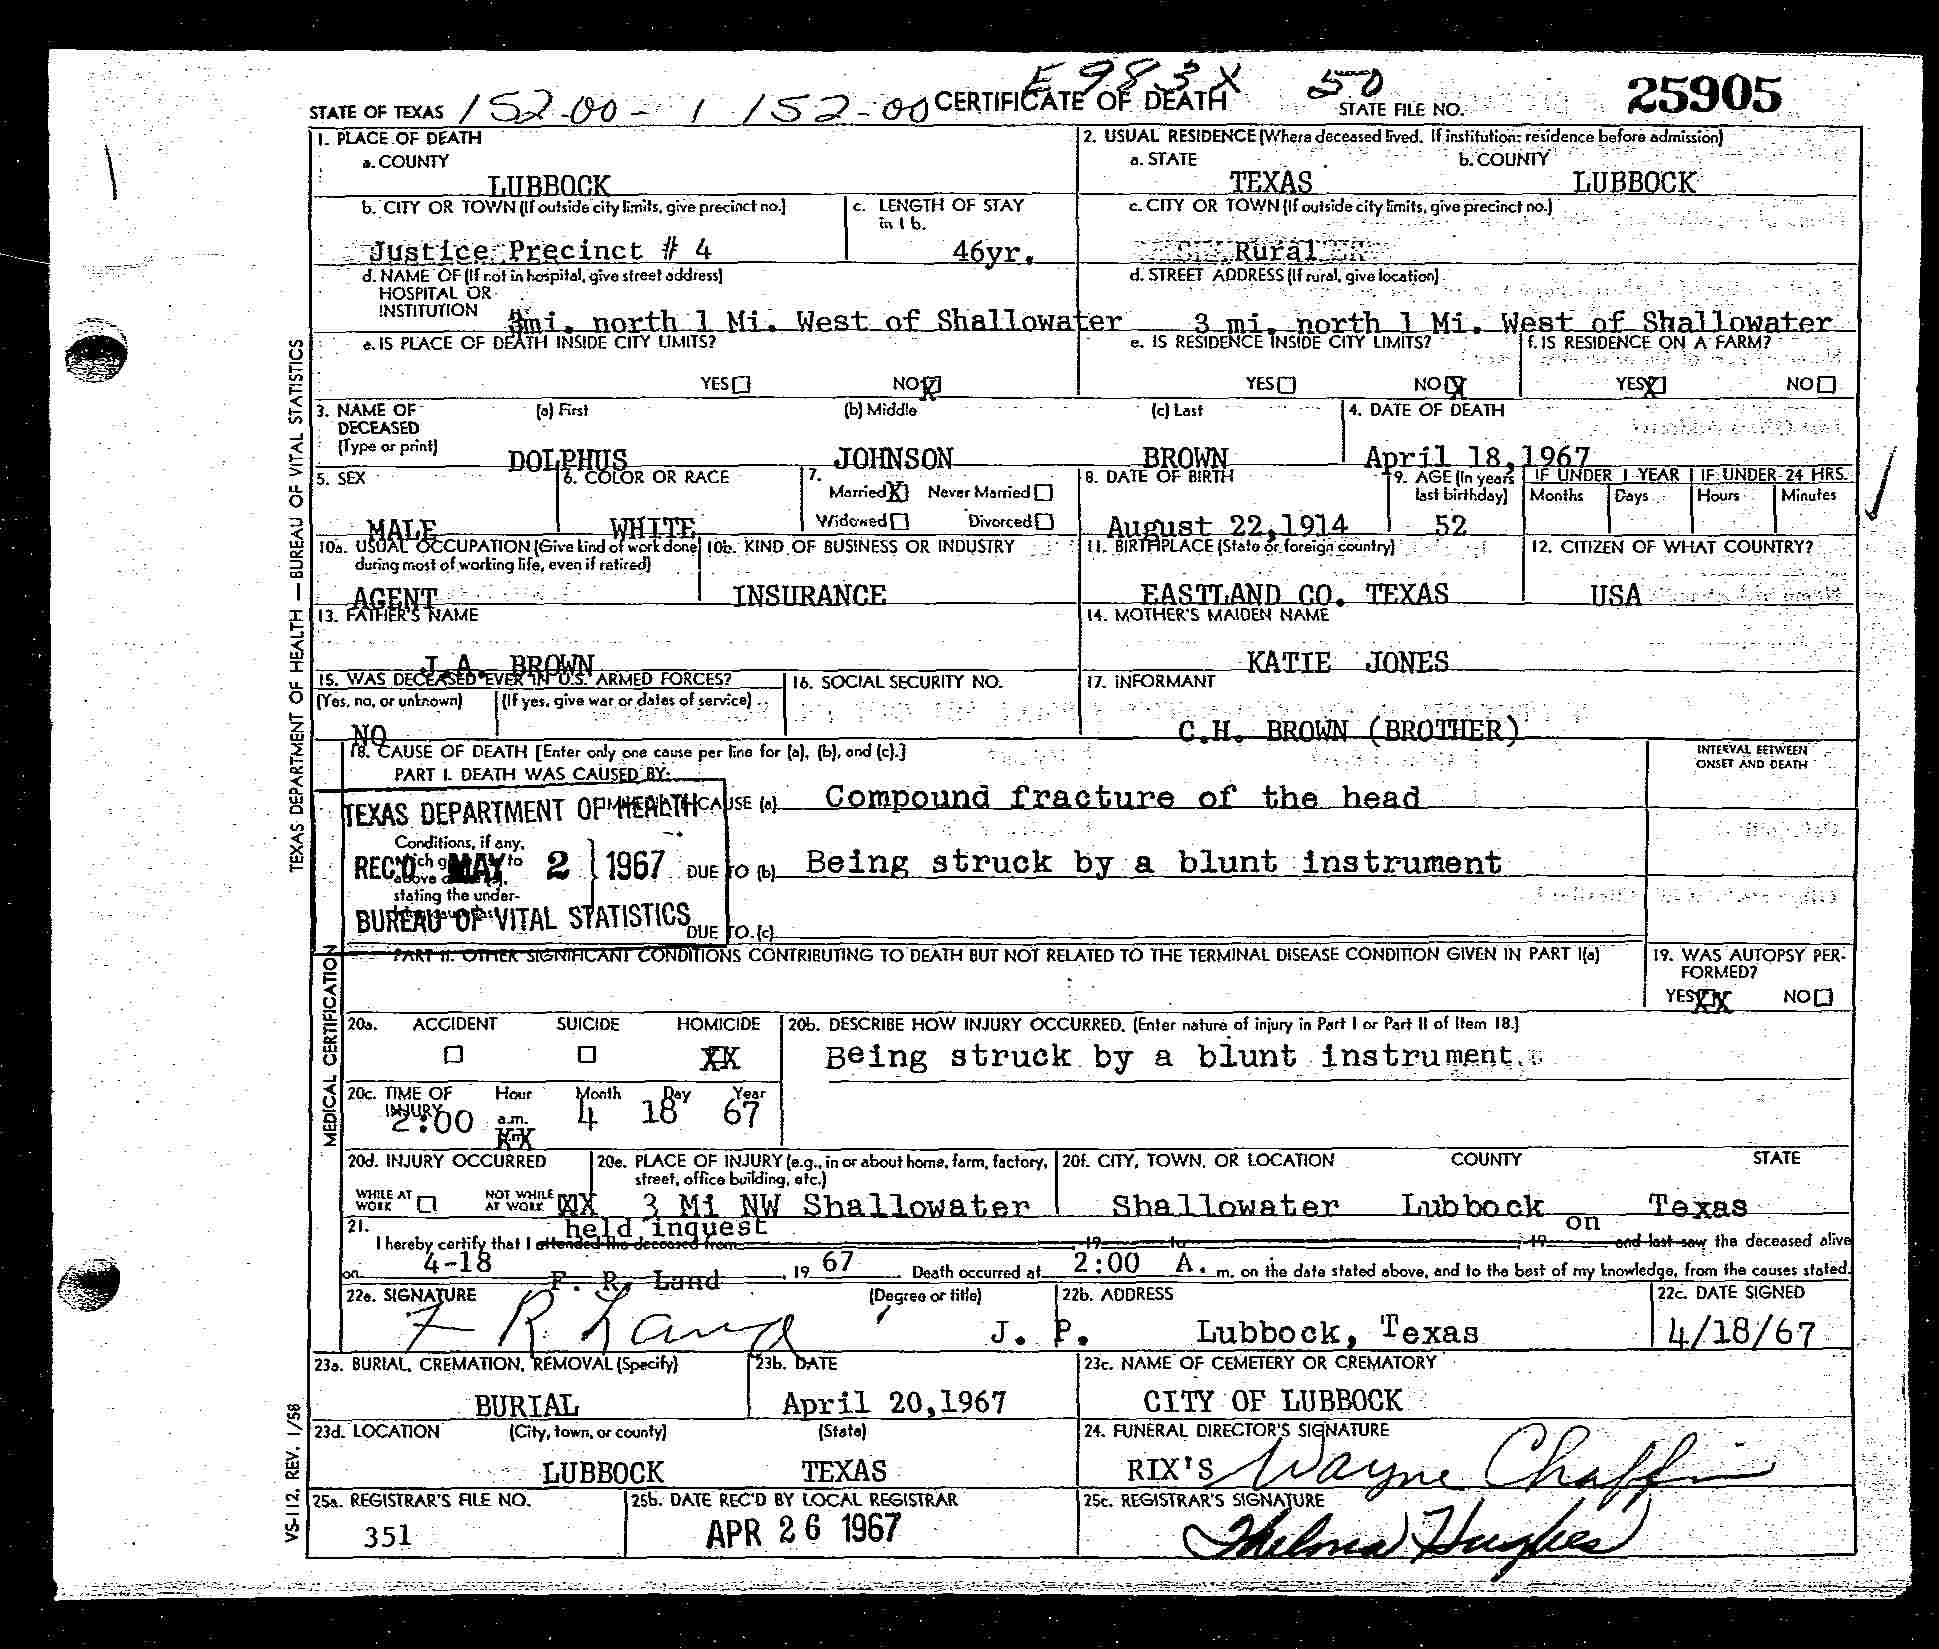 E983X 50
STATE OF TEXAS 152-00-1 152-00 CERTIFICATE OF DEATH STATE FILE NO. 25905
1. PLACE OF DEATH
a. COUNTY
LUBBOCK
2. USUAL RESIDENCE (Where deceased lived. If institution: residence before admission)
a. STATE b. COUNTY
TEXAS LUBBOCK
b. CITY OR TOWN (If outside city limits, give precinct no.)
Justice Precinct # 4
c. LENGTH OF STAY
in 1 b.
46yr.
c. CITY OR TOWN (If outside city limits, give precinct no.)
Rural
d. NAME OF (If not in hospital, give street address)
HOSPITAL OR
INSTITUTION 3mi. north 1 Mi. West of Shallowater
d. STREET ADDRESS (If rural, give location)
3 mi. north 1 Mi. West of Shallowater
e. IS PLACE OF DEATH INSIDE CITY LIMITS?
YES NO X
e. IS RESIDENCE INSIDE CITY LIMITS?
YES NO X
f. IS RESIDENCE ON A FARM?
YES X NO
3. NAME OF
DECEASED
(Type or print)
(a) First (b) Middle (c) Last
DOLPHUS JOHNSON BROWN
4. DATE OF DEATH
April 18,1967
5. SEX
MALE
6. COLOR OR RACE
WHITE
7.
Married X Never Married
Widowed Divorced
8. DATE OF BIRTH
August 22,1914
9. AGE (In years
last birthday)
52
IF UNDER 1 YEAR IF UNDER 24 HRS.
Months Days Hours Minutes
10a. USUAL OCCUPATION (Give kind of work done
during most of working life, even if retired)
AGENT
10b. KIND OF BUSINESS OR INDUSTRY
INSURANCE
11. BIRTHPLACE (State or foreign country)
EASTLAND CO. TEXAS
12. CITIZEN OF WHAT COUNTRY?
USA
13. FATHER'S NAME
J.A. BROWN
14. MOTHER'S MAIDEN NAME
KATIE JONES
15. WAS DECEASED EVER IN U.S. ARMED FORCES?
(Yes, no, or unknown) (If yes, give war or dates of service)
NO
16. SOCIAL SECURITY NO.
17. INFORMANT
C.H. BROWN (BROTHER)
18. CAUSE OF DEATH [Enter only one cause per line for (a), (b), and (c).]
PART I. DEATH WAS CAUSED BY:
INTERVAL BETWEEN
ONSET AND DEATH
CAUSE (a) Compound fracture of the head
Conditions, if any,
stating the under-
DUE TO (b) Being struck by a blunt instrument
DUE TO (c)
TEXAS DEPARTMENT OF HEALTH
REC'D MAY 2 1967
BUREAU OF VITAL STATISTICS
PART II. OTHER SIGNIFICANT CONDITIONS CONTRIBUTING TO DEATH BUT NOT RELATED TO THE TERMINAL DISEASE CONDITION GIVEN IN PART I(a)
19. WAS AUTOPSY PER-
FORMED?
YES XX NO
20a. ACCIDENT SUICIDE HOMICIDE
XX
20b. DESCRIBE HOW INJURY OCCURRED. (Enter nature of injury in Part I or Part II of Item 18.)
Being struck by a blunt instrument.
20c. TIME OF INJURY Hour Month Day Year
2:00 a.m. 4 18 67
20d. INJURY OCCURRED
WHILE AT
WORK
NOT WHILE
AT WORK XX
20e. PLACE OF INJURY (e.g., in or about home, farm, factory,
street, office building, etc.)
3 Mi NW Shallowater
20f. CITY, TOWN, OR LOCATION COUNTY STATE
Shallowater Lubbock Texas
21. held inquest on
I hereby certify that I attended the deceased from 19 to 19 and last saw the deceased alive
on 4-18, 19 67 Death occurred at 2:00 A. m. on the date stated above, and to the best of my knowledge, from the causes stated.
F. R. Land
22a. SIGNATURE (Degree or title)
F R Land J. P.
22b. ADDRESS
Lubbock, Texas
22c. DATE SIGNED
4/18/67
23a. BURIAL, CREMATION, REMOVAL (Specify)
BURIAL
23b. DATE
April 20,1967
23c. NAME OF CEMETERY OR CREMATORY
CITY OF LUBBOCK
23d. LOCATION (City, town, or county) (State)
LUBBOCK TEXAS
24. FUNERAL DIRECTOR'S SIGNATURE
RIX'S Wayne Chaffin
25a. REGISTRAR'S FILE NO.
351
25b. DATE REC'D BY LOCAL REGISTRAR
APR 26 1967
25c. REGISTRAR'S SIGNATURE
Thelma Hughes
TEXAS DEPARTMENT OF HEALTH — BUREAU OF VITAL STATISTICS
MEDICAL CERTIFICATION
VS-112, REV. 1/58